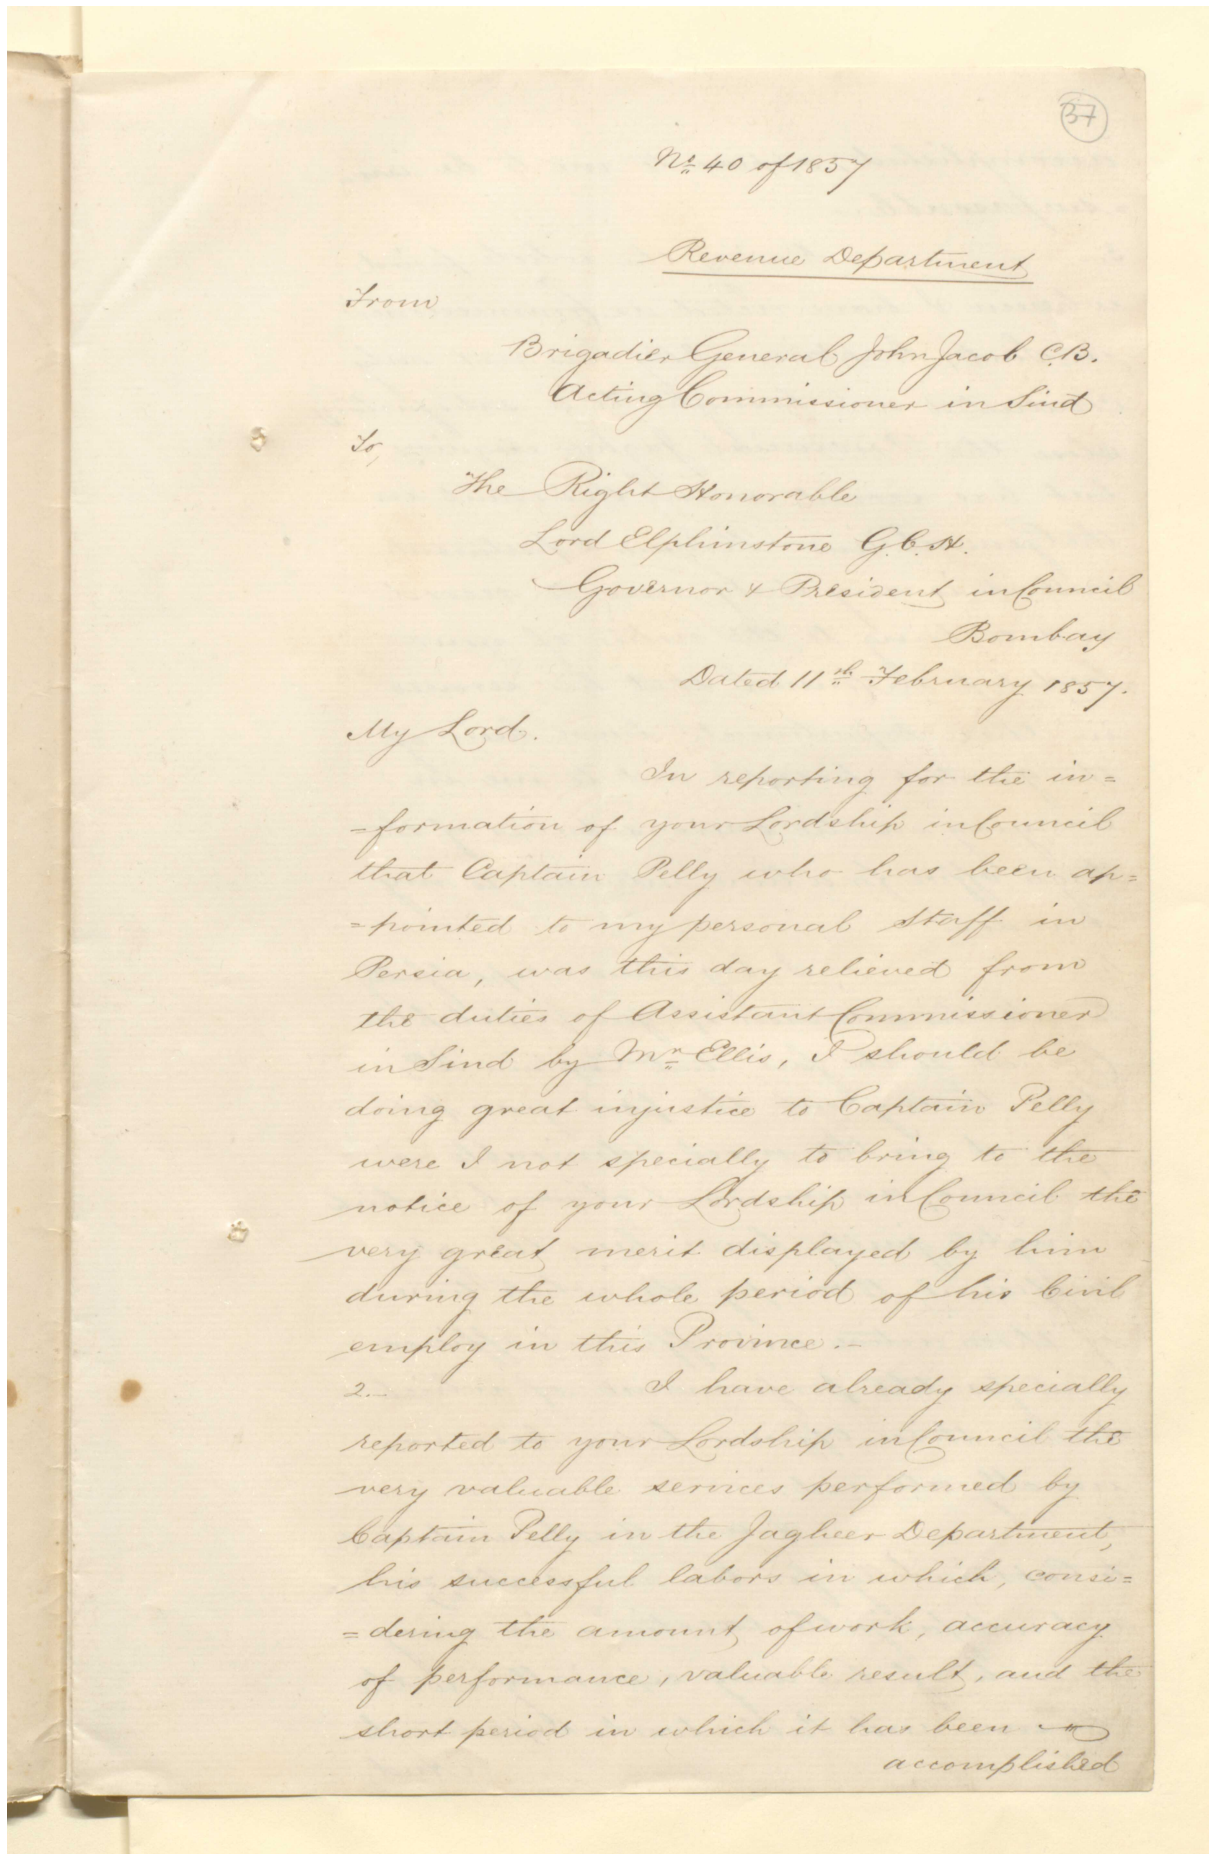 37
No. 40 of 1857
Revenue Department
From
Brigadier General John Jacob C.B.
Acting Commissioner in Sind
To,
The Right Honorable
Lord Elphinstone G.C.H.
Governor & President in Council
Bombay
Dated 11th February 1857.
My Lord.
In reporting for the in=
=formation of your Lordship in Council
that Captain Pelly who has been ap=
=pointed to my personal Staff in
Persia, was this day relieved from
the duties of Assistant Commissioner
in Sind by Mr. Ellis, I should be
doing great injustice to Captain Pelly
were I not specially to bring to the
notice of your Lordship in Council the
very great merit displayed by him
during the whole period of his Civil
employ in this Province.—
2.— I have already specially
reported to your Lordship in Council the
very valuable services performed by
Captain Pelly in the Jagheer Department,
his successful labors in which, consi=
=dering the amount of work, accuracy
of performance, valuable result, and the
short period in which it has been
accomplished